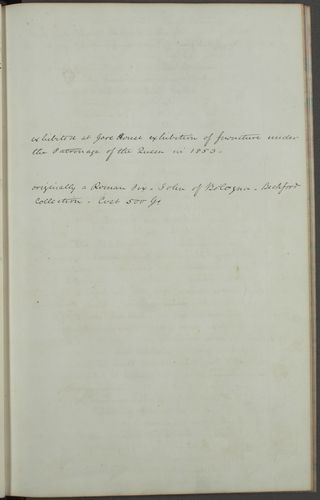 exhibited at Gore House exhibition of furniture under
the Patronage of the Queen in 1853 -
originally a Roman Pix - John of Bologna - Beckford
Collection - Cost 500 Gs